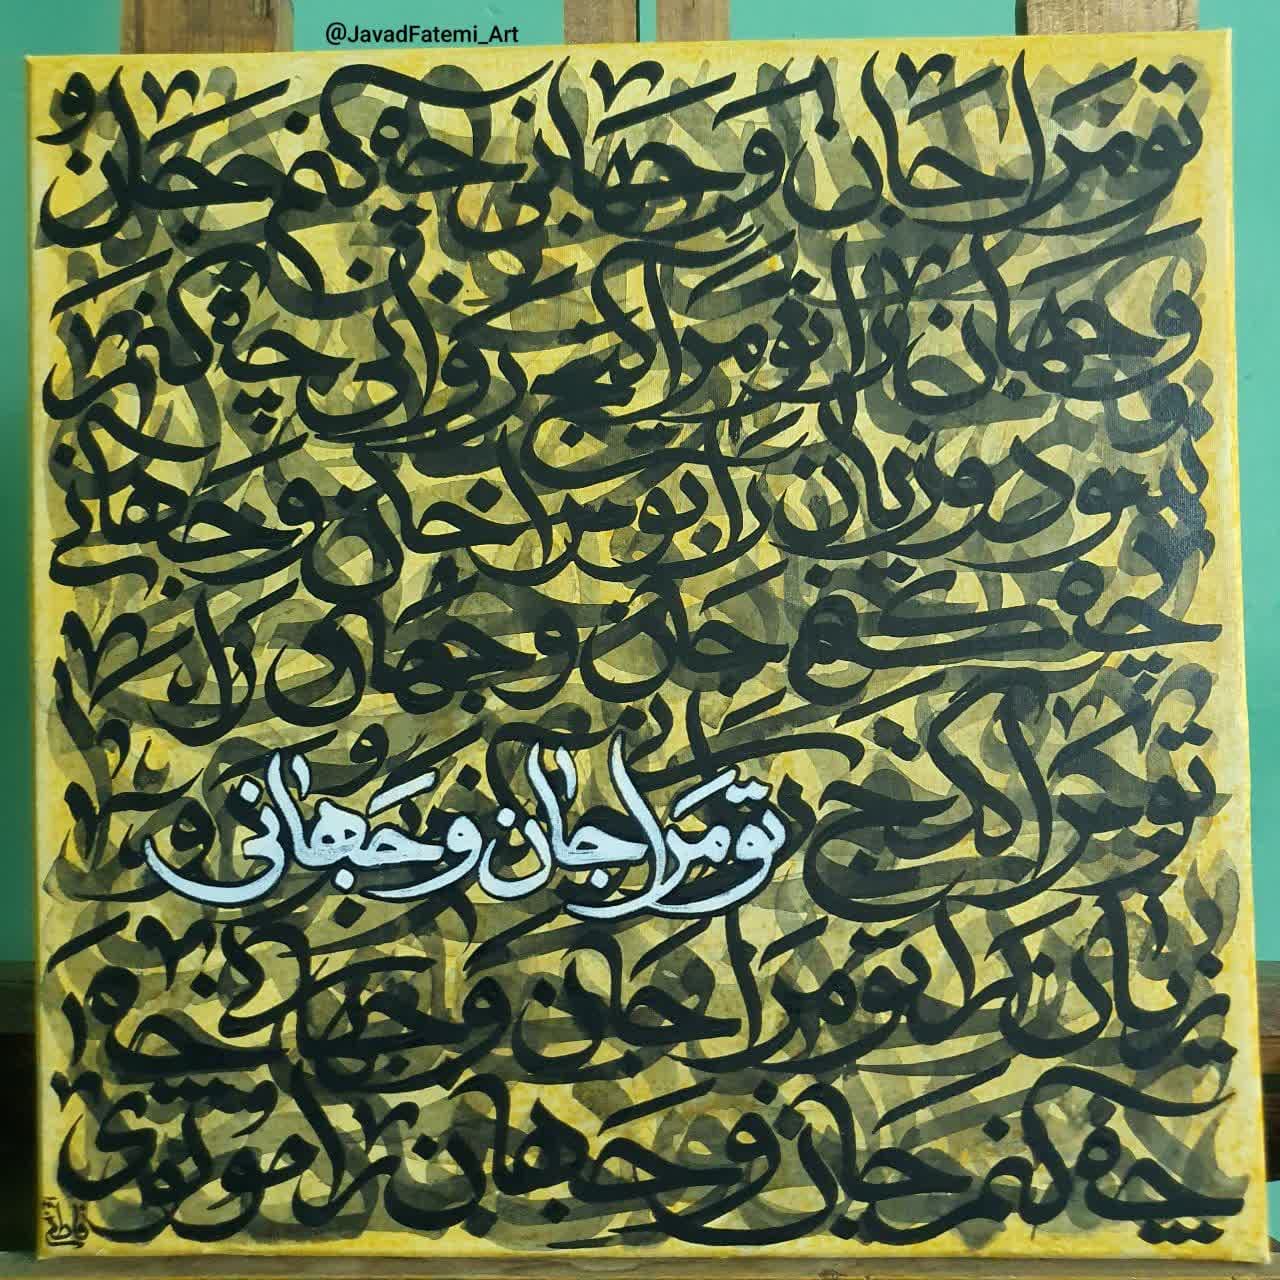 @JavadFatemi_Art
تو مرا جان و جهانی چه کنم جان و
و جهان را تو مرا گنج روانی چه کنم
سود و زیان را تو مرا جان و جهانی
چه کنم جان و جهان را
تو مرا گنج
تو مرا جان و جهانی
زیان را تو مرا جان و جهانی چه
چه کنم جان و جهان را